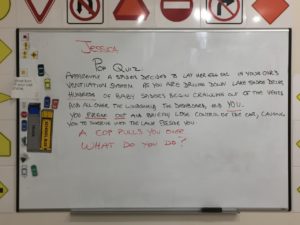 Jessica
Pop Quiz
Apparently a spider decided to lay her eggs in your car's
ventilation system. As you are driving down Lake Shore Drive
hundreds of baby spiders begin crawling out of the vents
and all over the windshield, the dashboard, and YOU.
You FREAK OUT and briefly lose control of the car, causing
you to swerve into the lane beside you.
A COP PULLS YOU OVER
WHAT DO YOU DO?